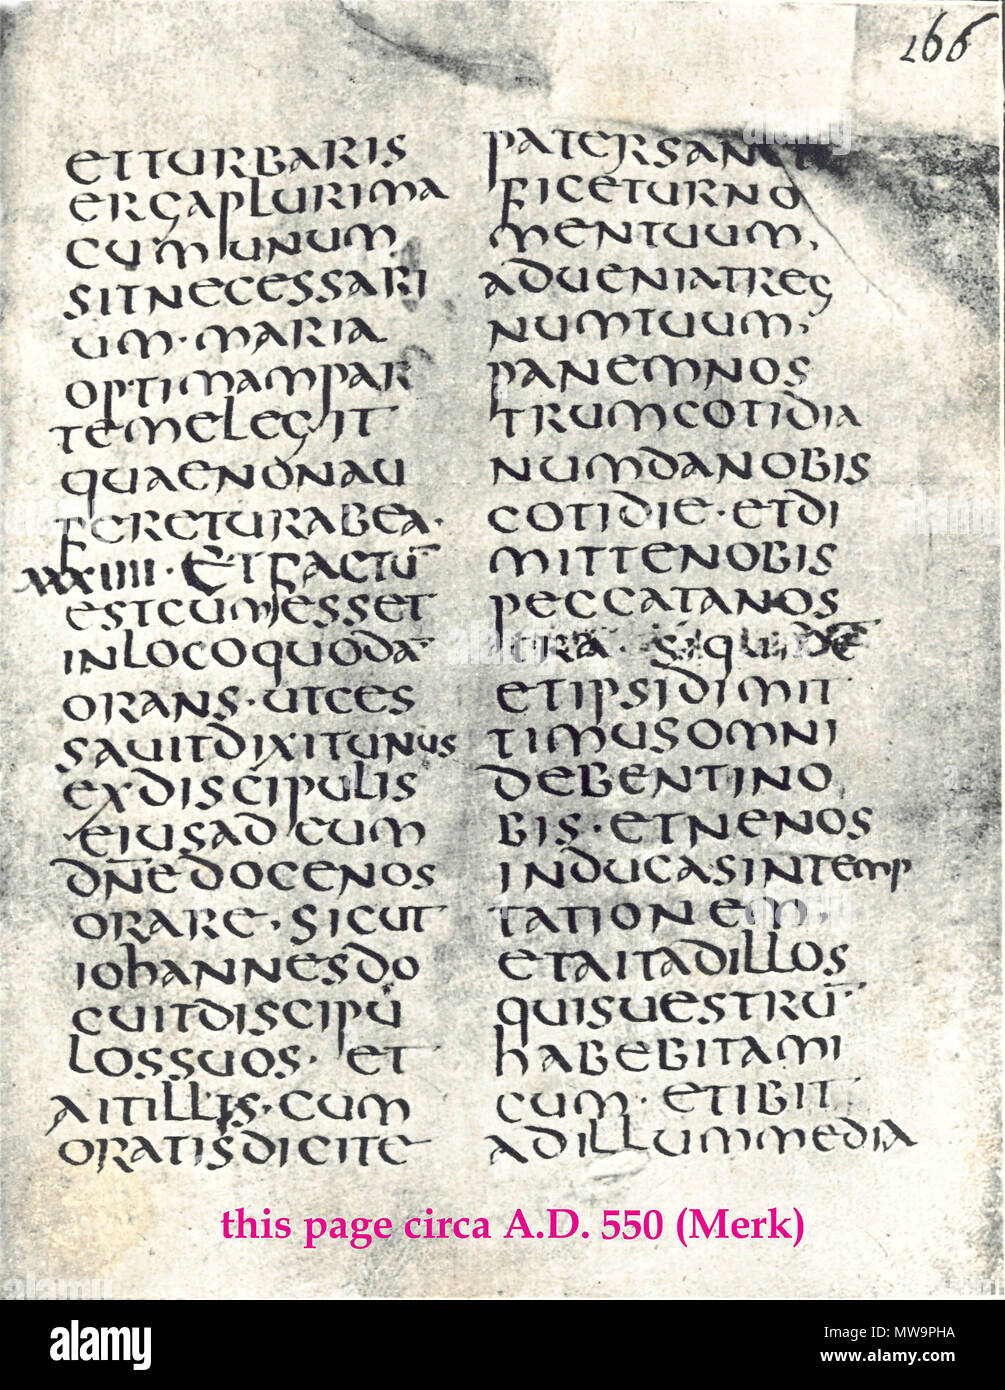 266
ETTURBARIS
ERGAPLURIMA
CUMUNUM
SITNECESSARI
UM·MARIA
OPTIMAMPAR
TEMELEGIT
QUAENONAU
FERETURABEA·
XXXIIII·ETFACTŪ
ESTCUMESSET
INLOCOQUODĀ
ORANS·UTCES
SAUITDIXITUNUS
EXDISCIPULIS
EIUSADEUM
DN̄EDOCENOS
ORARE·SICUT
IOHANNESDO
CUITDISCIPU
LOSSUOS·ET
AITILLIS·CUM
ORATISDICITE
PATERSANCT
FICETURNO
MENTUUM,
ADUENIATREG
NUMTUUM,
PANEMNOS
TRUMCOTIDIA
NUMDANOBIS
COTIDIE·ETDI
MITTENOBIS
PECCATANOS
TRA·SIQUIDĒ
ETIPSIDIMIT
TIMUSOMNI
DEBENTINO
BIS·ETNENOS
INDUCASINTEMP
TATIONEM·
ETAITADILLOS
QUISUESTRŪ
HABEBITAMI
CUM·ETIBIT
ADILLUMMEDIA
this page circa A.D. 550 (Merk)
alamy
Image ID: MW9PHA
www.alamy.com